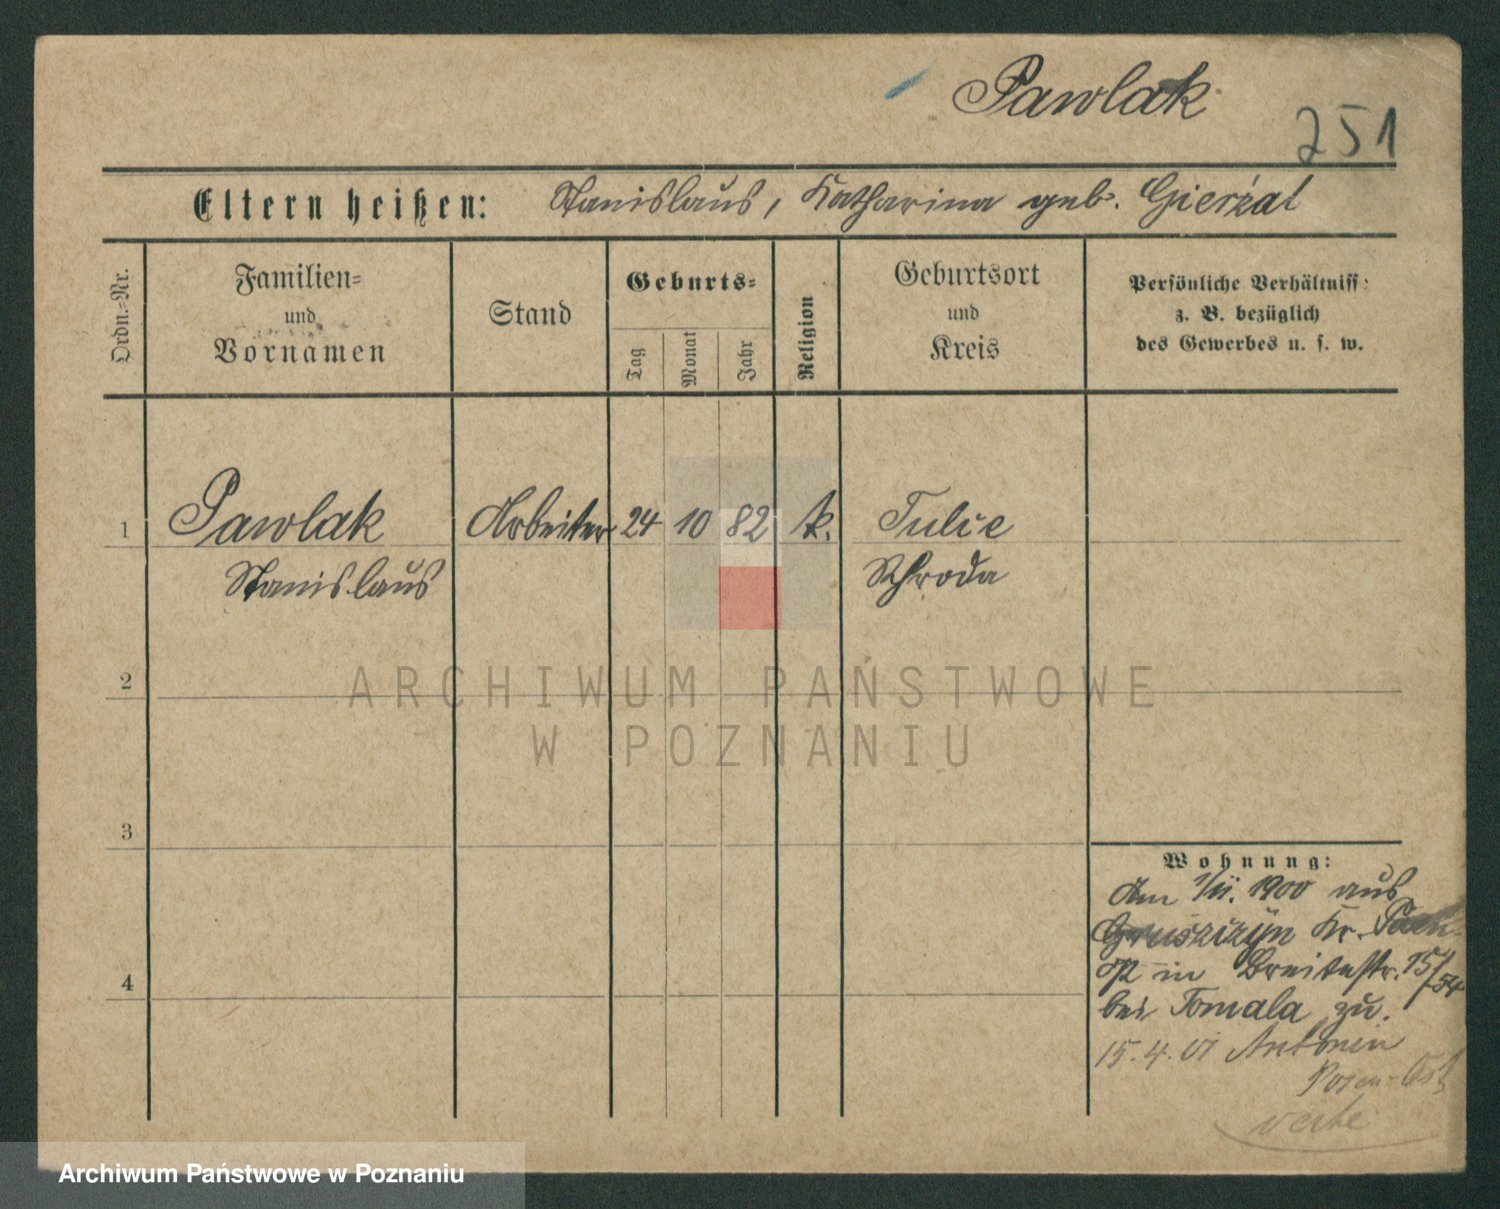 Pawlak
251
Eltern heißen: Stanislaus, Katharina geb. Gierżal
Ordn.-Nr.
Familien-
und
Vornamen
Stand
Geburts-
Tag
Monat
Jahr
Religion
Geburtsort
und
Kreis
Persönliche Verhältniss
z. B. bezüglich
des Gewerbes u. s. w.
1 Pawlak Arbeiter 24 10 82 k. Tulce
Stanislaus Schroda
2
ARCHIWUM PAŃSTWOWE
W POZNANIU
3
Wohnung:
Am 1/11. 1900 aus
Gruszczyn Kr. Posen-
Ost in Breitestr. 15/54
bei Tomala zu.
15.4.01 Antonin
Posen-Ost
4
Archiwum Państwowe w Poznaniu